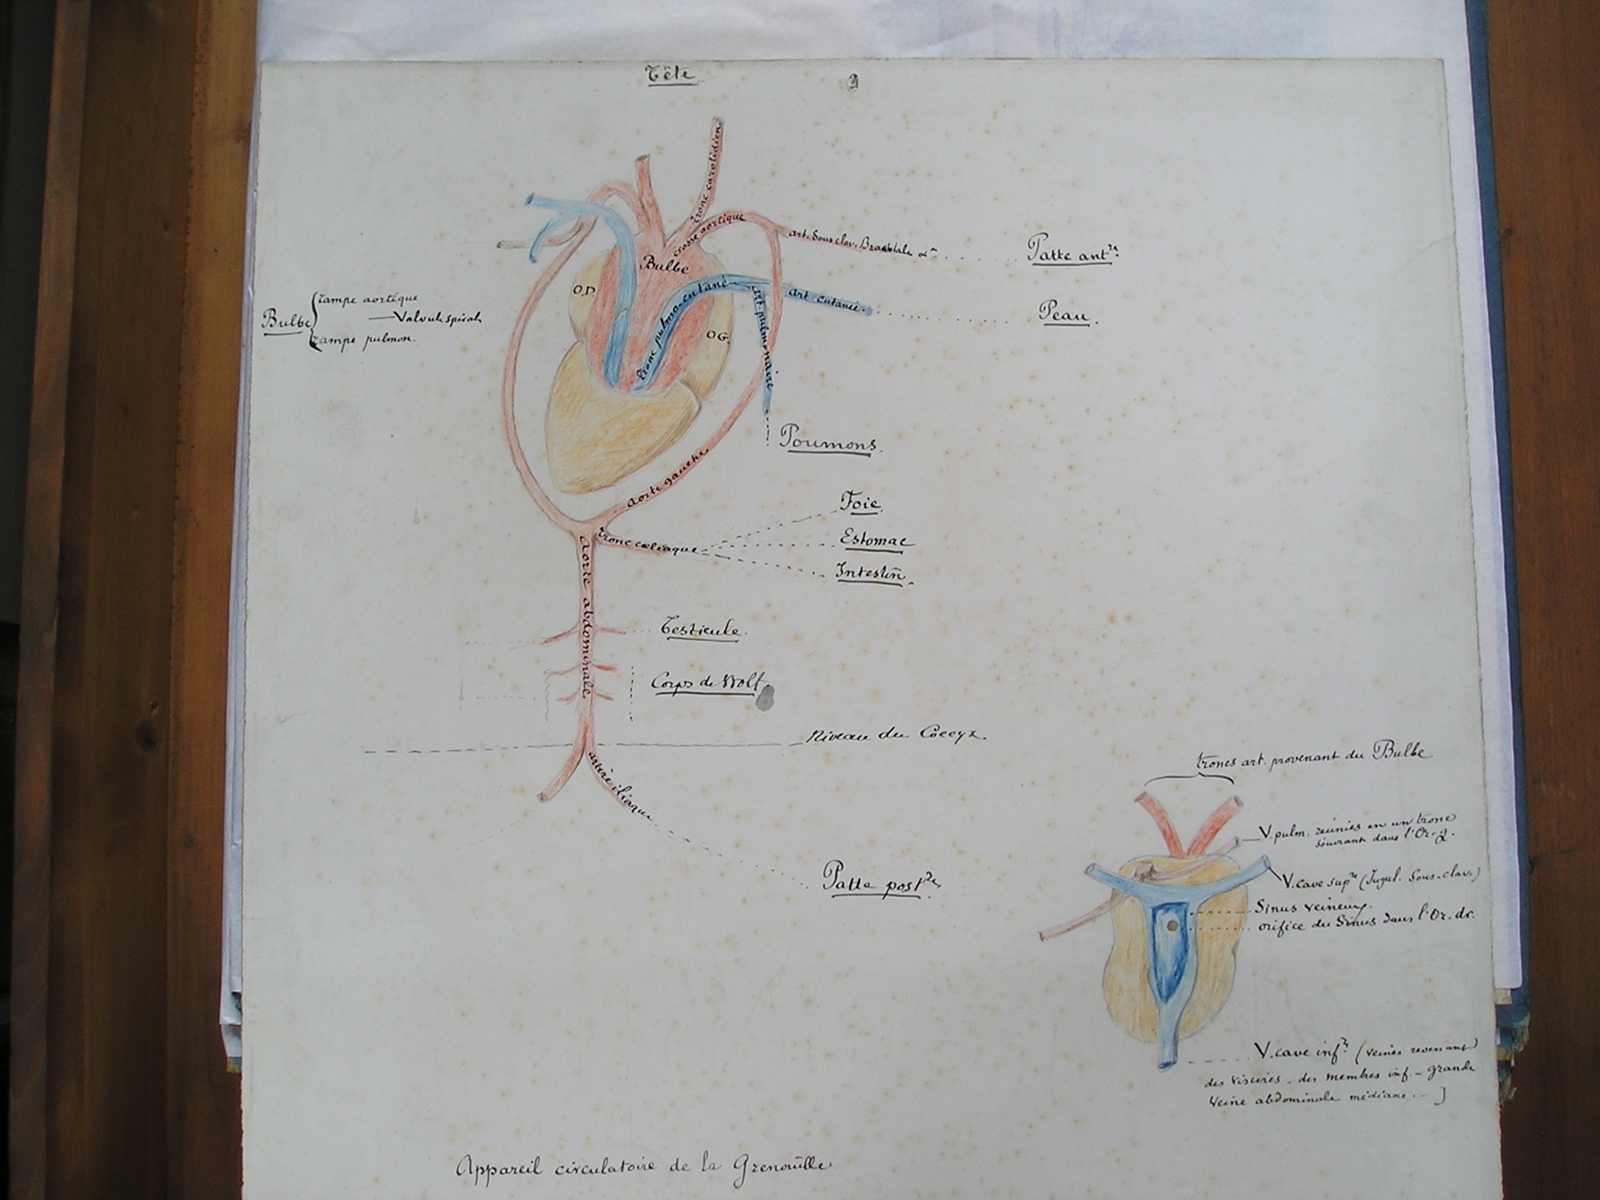 Tête
tronc carotidien
crosse aortique
art. Sous clav. Brachiale dte
Patte antre
Bulbe
O.D.
tronc pulmo-cutané
art. cutanée
Peau.
art. pulmonaire
O G.
Bulbe
rampe aortique
Valvule spirale
rampe pulmon.
Poumons.
aorte gauche
Foie.
tronc cœliaque
Estomac
Intestin.
Aorte abdominale
Testicule.
Corps de Wolf
Niveau du Coccyx
artère iliaque
Patte postre
troncs art. provenant du Bulbe
V. pulm. réunies en un tronc
s'ouvrant dans l'Or. g.
V. cave supre (Jugul. Sous-clav.)
Sinus veineux.
orifice du Sinus dans l'Or. dr.
V. cave infre (veines revenant
des viscères - des membres inf - grande
veine abdominale médiane ... )
Appareil circulatoire de la Grenouille